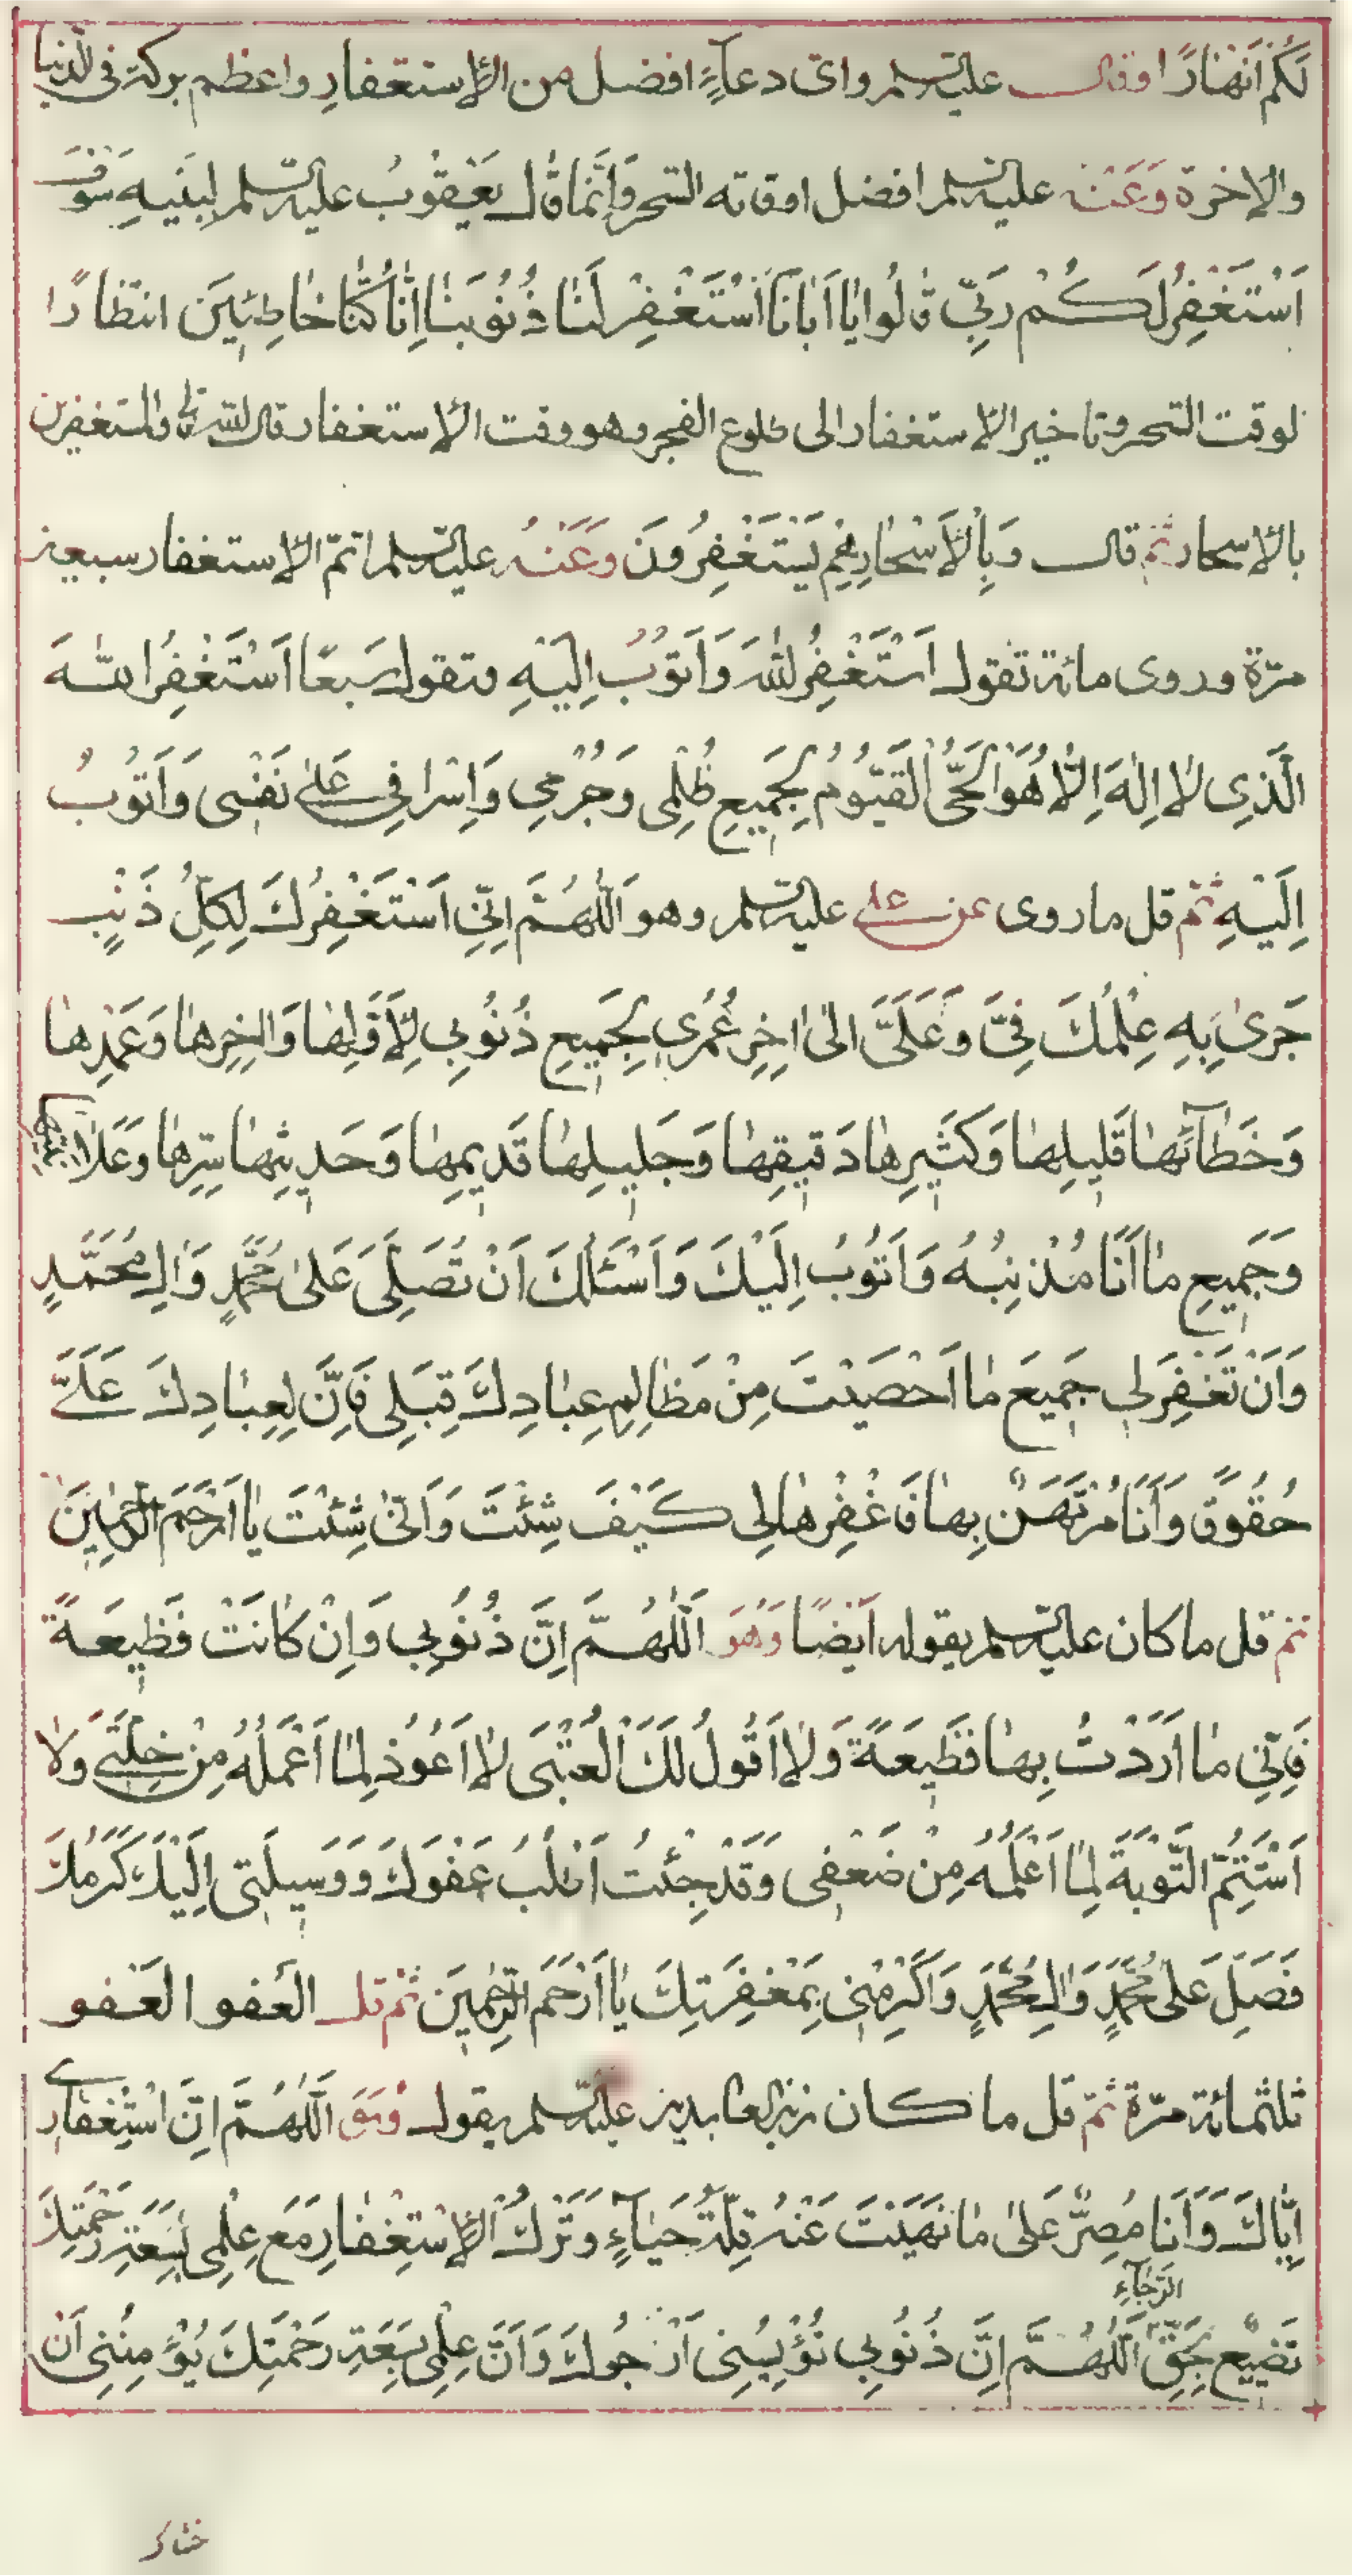 لَكُمْ اَنْهٰارًا وقال عليه السلم واى دعاءٍ افضل من الإستغفارِ واعظم بركة فى الدنيا
والاخرة وَعَنْهُ عليه السلم افضل اوقاته السحر وَاِنَّمٰا قٰال يَعْقُوبُ عليه السلم لِبَنيهِ سَوْفَ
اَسْتَغْفِرُ لَكُمْ رَبِّي قٰالُوا يٰا اَبٰانَا اسْتَغْفِرْ لَنٰا ذُنُوبَنٰا اِنّٰا كُنّٰا خٰاطِئِينَ انتظارًا
لوقت السحر وتاخير الاستغفار الى طلوع الفجر وهو وقت الإستغفار قال الله تع والمستغفرين
بالاسحار ثم قال وَبِالْأَسْحٰارِ هُمْ يَسْتَغْفِرُونَ وَعَنْهُ عليه السلم اتمّ الإستغفار سبعين
مرّة وروى مائة تقول اَسْتَغْفِرُ اللهَ وَاَتُوبُ اِلَيْهِ وتقول سَبعًا اَسْتَغْفِرُ اللهَ
الَّذِى لٰا اِلٰهَ اِلّٰا هُوَ الْحَىُّ الْقَيُّومُ لِجَمِيعِ ظُلْمِى وَجُرْمِى وَاِسْرٰافِى عَلىٰ نَفْسِى وَاَتُوبُ
اِلَيْهِ ثم قل ماروى عن على عليه السلم وهو اَللّٰهُمَّ اِنِّى اَسْتَغْفِرُكَ لِكُلِّ ذَنْبٍ
جَرىٰ بِهِ عِلْمُكَ فِىَّ وَعَلَىَّ الىٰ اٰخِرِ عُمْرِى لِجَمِيعِ ذُنُوبِى لِأَوَّلِهٰا وَاٰخِرِهٰا وَعَمْدِهٰا
وَخَطٰآئِهٰا قَلِيلِهٰا وَكَثِيرِهٰا دَقِيقِهٰا وَجَلِيلِهٰا قَدِيمِهٰا وَحَدِيثِهٰا سِرِّهٰا وَعَلٰانِيَتِهٰا
وَجَمِيعِ مٰا اَنَا مُذْنِبُهُ وَاَتُوبُ اِلَيْكَ وَاَسْئَلُكَ اَنْ تُصَلِّىَ عَلىٰ مُحَمَّدٍ وَاٰلِ مُحَمَّدٍ
وَاَنْ تَغْفِرَ لِى جَمِيعَ مٰا اَحْصَيْتَ مِنْ مَظٰالِمِ عِبٰادِكَ قِبَلِى فَاِنَّ لِعِبٰادِكَ عَلَىَّ
حُقُوقٌ وَاَنَا مُرْتَهَنٌ بِهٰا فَاغْفِرْهٰا لِى كَيْفَ شِئْتَ وَاَنّىٰ شِئْتَ يٰا اَرْحَمَ الرّٰحِمِينَ
ثم قل ما كان عليه السلم يقوله اَيْضًا وَهُوَ اَللّٰهُمَّ اِنَّ ذُنُوبِى وَاِنْ كٰانَتْ فَظِيعَةً
فَاِنِّى مٰا اَرَدْتُ بِهٰا فَظِيعَةً وَلٰا اَقُولُ لَكَ الْعُتْبىٰ لٰا اَعُوذُ لِمٰا اَعْمَلُهُ مِنْ خِلَّتِى وَلٰا
اَسْتَتِمُّ التَّوْبَةَ لِمٰا اَعْلَمُهُ مِنْ ضَعْفِى وَقَدْ جِئْتُ اَطْلُبُ عَفْوَكَ وَوَسِيلَتِى اِلَيْكَ كَرَمُكَ
فَصَلِّ عَلىٰ مُحَمَّدٍ وَاٰلِ مُحَمَّدٍ وَاَكْرِمْنِى بِمَغْفِرَتِكَ يٰا اَرْحَمَ الرّٰحِمِينَ ثم قل العَفو العَفو
ثلثمائة مرّة ثمّ قل ما كان زين العابدين عليه السلم يقول وَهُوَ اَللّٰهُمَّ اِنَّ اسْتِغْفٰارِى
اِيّٰاكَ وَاَنَا مُصِرٌّ عَلىٰ مٰا نَهَيْتَ عَنْهُ قِلَّةُ حَيٰآءٍ وَتَرْكُ الْإِسْتِغْفٰارِ مَعَ عِلْمِى بِسَعَةِ رَحْمَتِكَ
تَضْيِيعٌ لِحَقِّ الرَّجٰآءِ اَللّٰهُمَّ اِنَّ ذُنُوبِى تُؤْيِسُنِى اَنْ اَرْجُوكَ وَاَنَّ عِلْمِى بِسَعَةِ رَحْمَتِكَ يُؤْمِنُنِى اَنْ